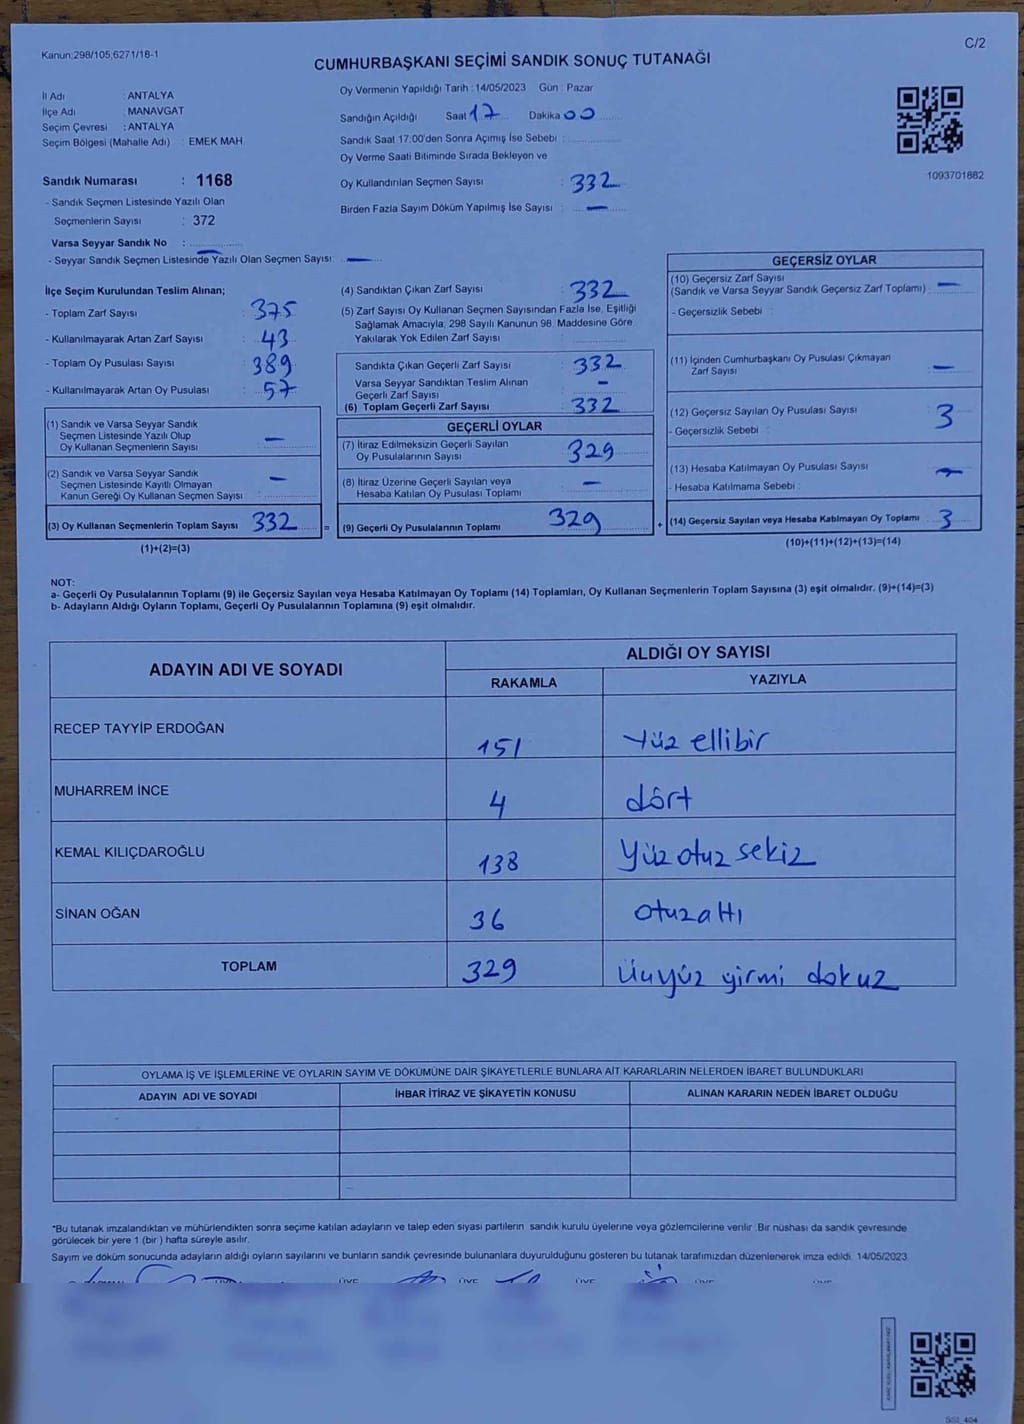 Kanun;298/105;6271/18-1
C/2
CUMHURBAŞKANI SEÇİMİ SANDIK SONUÇ TUTANAĞI
İl Adı : ANTALYA
İlçe Adı : MANAVGAT
Seçim Çevresi : ANTALYA
Seçim Bölgesi (Mahalle Adı) : EMEK MAH.
Sandık Numarası : 1168
- Sandık Seçmen Listesinde Yazılı Olan
Seçmenlerin Sayısı : 372
Varsa Seyyar Sandık No :
- Seyyar Sandık Seçmen Listesinde Yazılı Olan Seçmen Sayısı: —
Oy Vermenin Yapıldığı Tarih : 14/05/2023 Gün : Pazar
Sandığın Açıldığı Saat 17 Dakika 00
Sandık Saat 17:00'den Sonra Açımış İse Sebebi :
Oy Verme Saati Bitiminde Sırada Bekleyen ve
Oy Kullandırılan Seçmen Sayısı : 332
Birden Fazla Sayım Döküm Yapılmış İse Sayısı : —
1093701882
İlçe Seçim Kurulundan Teslim Alınan;
- Toplam Zarf Sayısı : 375
- Kullanılmayarak Artan Zarf Sayısı : 43
- Toplam Oy Pusulası Sayısı : 389
- Kullanılmayarak Artan Oy Pusulası : 57
(1) Sandık ve Varsa Seyyar Sandık
Seçmen Listesinde Yazılı Olup
Oy Kullanan Seçmenlerin Sayısı : —
(2) Sandık ve Varsa Seyyar Sandık
Seçmen Listesinde Kayıtlı Olmayan
Kanun Gereği Oy Kullanan Seçmen Sayısı : —
(3) Oy Kullanan Seçmenlerin Toplam Sayısı 332 =
(1)+(2)=(3)
(4) Sandıktan Çıkan Zarf Sayısı : 332
(5) Zarf Sayısı Oy Kullanan Seçmen Sayısından Fazla İse, Eşitliği
Sağlamak Amacıyla, 298 Sayılı Kanunun 98. Maddesine Göre
Yakılarak Yok Edilen Zarf Sayısı :
Sandıkta Çıkan Geçerli Zarf Sayısı : 332
Varsa Seyyar Sandıktan Teslim Alınan
Geçerli Zarf Sayısı : —
(6) Toplam Geçerli Zarf Sayısı : 332
GEÇERLİ OYLAR
(7) İtiraz Edilmeksizin Geçerli Sayılan
Oy Pusulalarının Sayısı : 329
(8) İtiraz Üzerine Geçerli Sayılan veya
Hesaba Katılan Oy Pusulası Toplamı : —
(9) Geçerli Oy Pusulalarının Toplamı 329 +
GEÇERSİZ OYLAR
(10) Geçersiz Zarf Sayısı
(Sandık ve Varsa Seyyar Sandık Geçersiz Zarf Toplamı) : —
- Geçersizlik Sebebi :
(11) İçinden Cumhurbaşkanı Oy Pusulası Çıkmayan
Zarf Sayısı : —
(12) Geçersiz Sayılan Oy Pusulası Sayısı : 3
- Geçersizlik Sebebi :
(13) Hesaba Katılmayan Oy Pusulası Sayısı : —
- Hesaba Katılmama Sebebi :
(14) Geçersiz Sayılan veya Hesaba Katılmayan Oy Toplamı 3
(10)+(11)+(12)+(13)=(14)
NOT:
a- Geçerli Oy Pusulalarının Toplamı (9) ile Geçersiz Sayılan veya Hesaba Katılmayan Oy Toplamı (14) Toplamları, Oy Kullanan Seçmenlerin Toplam Sayısına (3) eşit olmalıdır. (9)+(14)=(3)
b- Adayların Aldığı Oyların Toplamı, Geçerli Oy Pusulalarının Toplamına (9) eşit olmalıdır.
ADAYIN ADI VE SOYADI ALDIĞI OY SAYISI
RAKAMLA YAZIYLA
RECEP TAYYİP ERDOĞAN 151 Yüz ellibir
MUHARREM İNCE 4 dört
KEMAL KILIÇDAROĞLU 138 Yüz otuz sekiz
SİNAN OĞAN 36 otuzaltı
TOPLAM 329 Üçyüz yirmi dokuz
OYLAMA İŞ VE İŞLEMLERİNE VE OYLARIN SAYIM VE DÖKÜMÜNE DAİR ŞİKAYETLERLE BUNLARA AİT KARARLARIN NELERDEN İBARET BULUNDUKLARI
ADAYIN ADI VE SOYADI İHBAR İTİRAZ VE ŞİKAYETİN KONUSU ALINAN KARARIN NEDEN İBARET OLDUĞU
*Bu tutanak imzalandıktan ve mühürlendikten sonra seçime katılan adayların ve talep eden siyasi partilerin sandık kurulu üyelerine veya gözlemcilerine verilir. Bir nüshası da sandık çevresinde
görülecek bir yere 1 (bir ) hafta süreyle asılır.
Sayım ve döküm sonucunda adayların aldığı oyların sayılarını ve bunların sandık çevresinde bulunanlara duyurulduğunu gösteren bu tutanak tarafımızdan düzenlenerek imza edildi. 14/05/2023